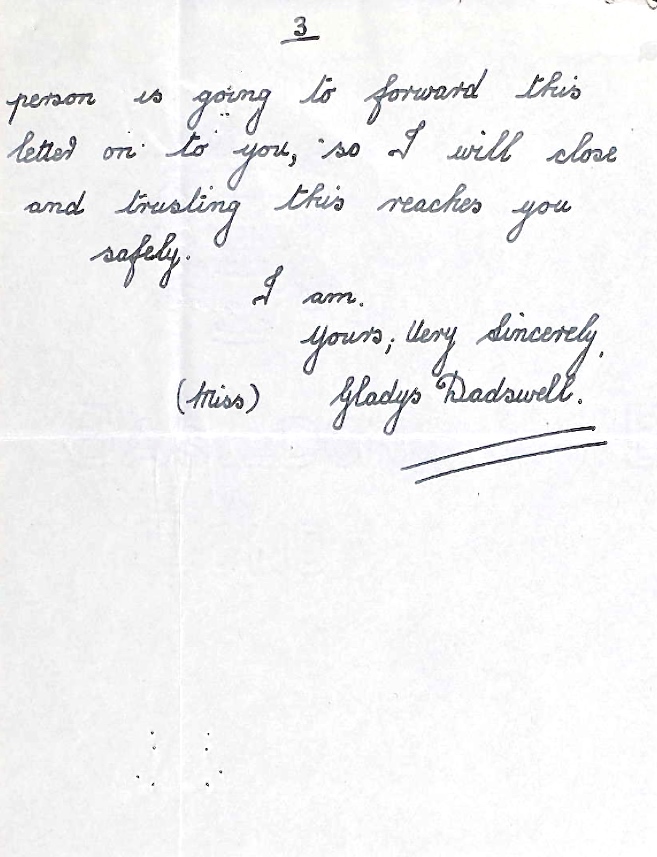 3
person is going to forward this
letter on to you, so I will close
and trusting this reaches you
safely.
I am.
Yours, Very Sincerely,
(Miss) Gladys Dadswell.